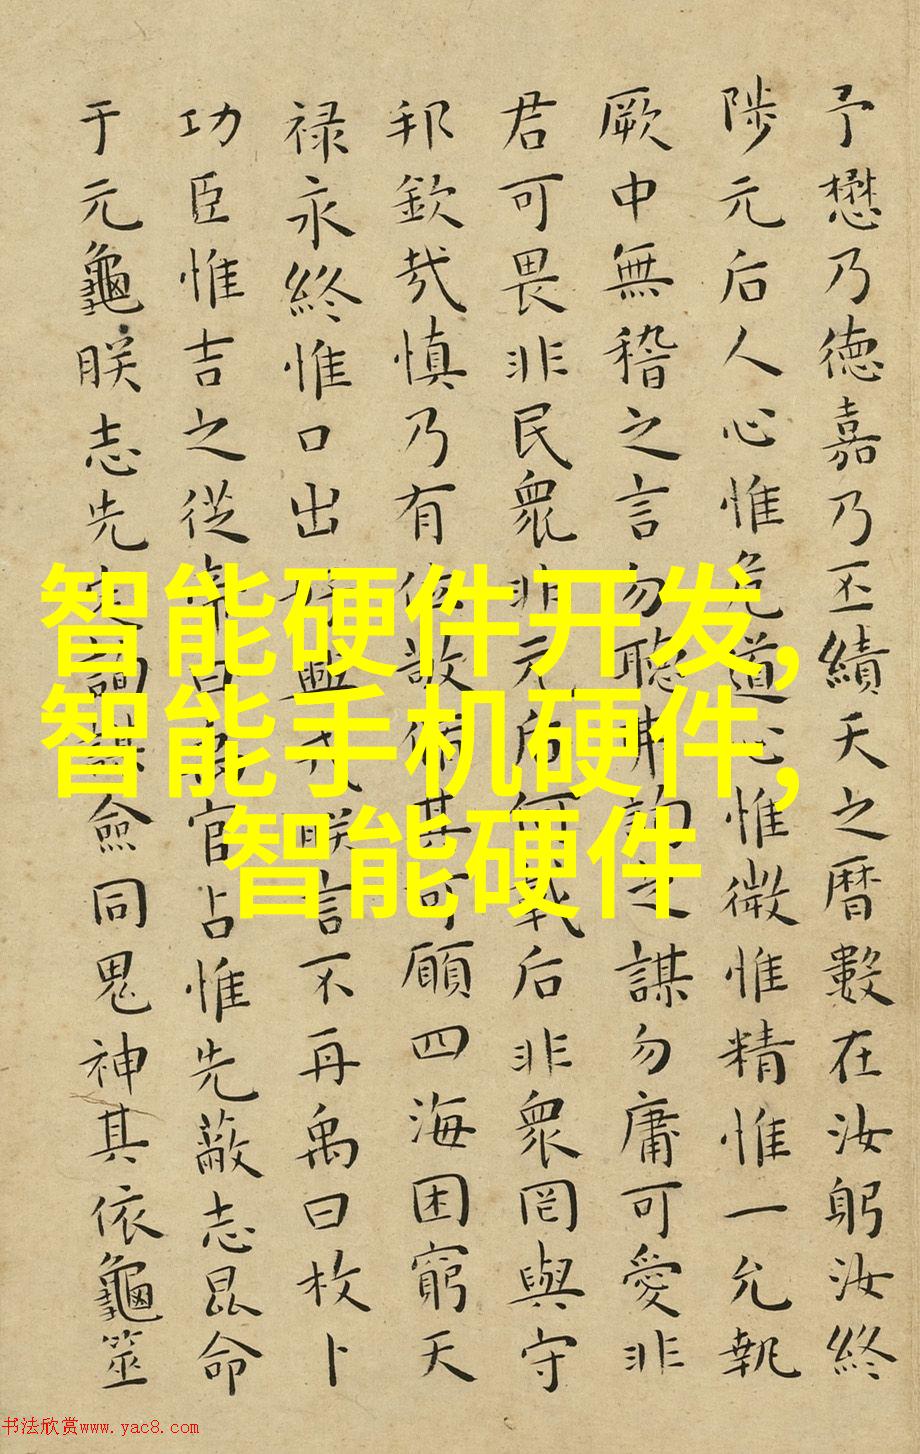 予懋乃德嘉乃丕績天之曆數在汝躬汝終
陟元后人心惟危道心惟微惟精惟一允執
厥中無稽之言勿聽弗詢之謀勿庸可愛非
君可畏非民衆非元后何戴后非衆罔與守
邦欽哉慎乃有位敬修其可願四海困窮天
禄永終惟口出好興戎朕言不再禹曰枚卜
功臣惟吉之從帝曰禹官占惟先蔽志昆命
于元龜朕志先定詢謀僉同鬼神其依龜筮
智能硬件开发,
智能手机硬件,
智能硬件
书法欣赏www.yac8.com